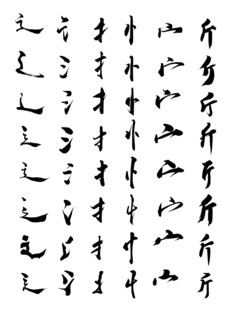 辶 扌 忄 斤
辶 氵 扌 忄 宀 斤
辶 氵 扌 忄 宀 斤
辶 氵 扌 忄 宀 斤
辶 氵 扌 忄 宀 斤
辶 氵 扌 忄 宀 斤
辶 氵 扌 忄 宀 斤
辶 扌 忄 斤